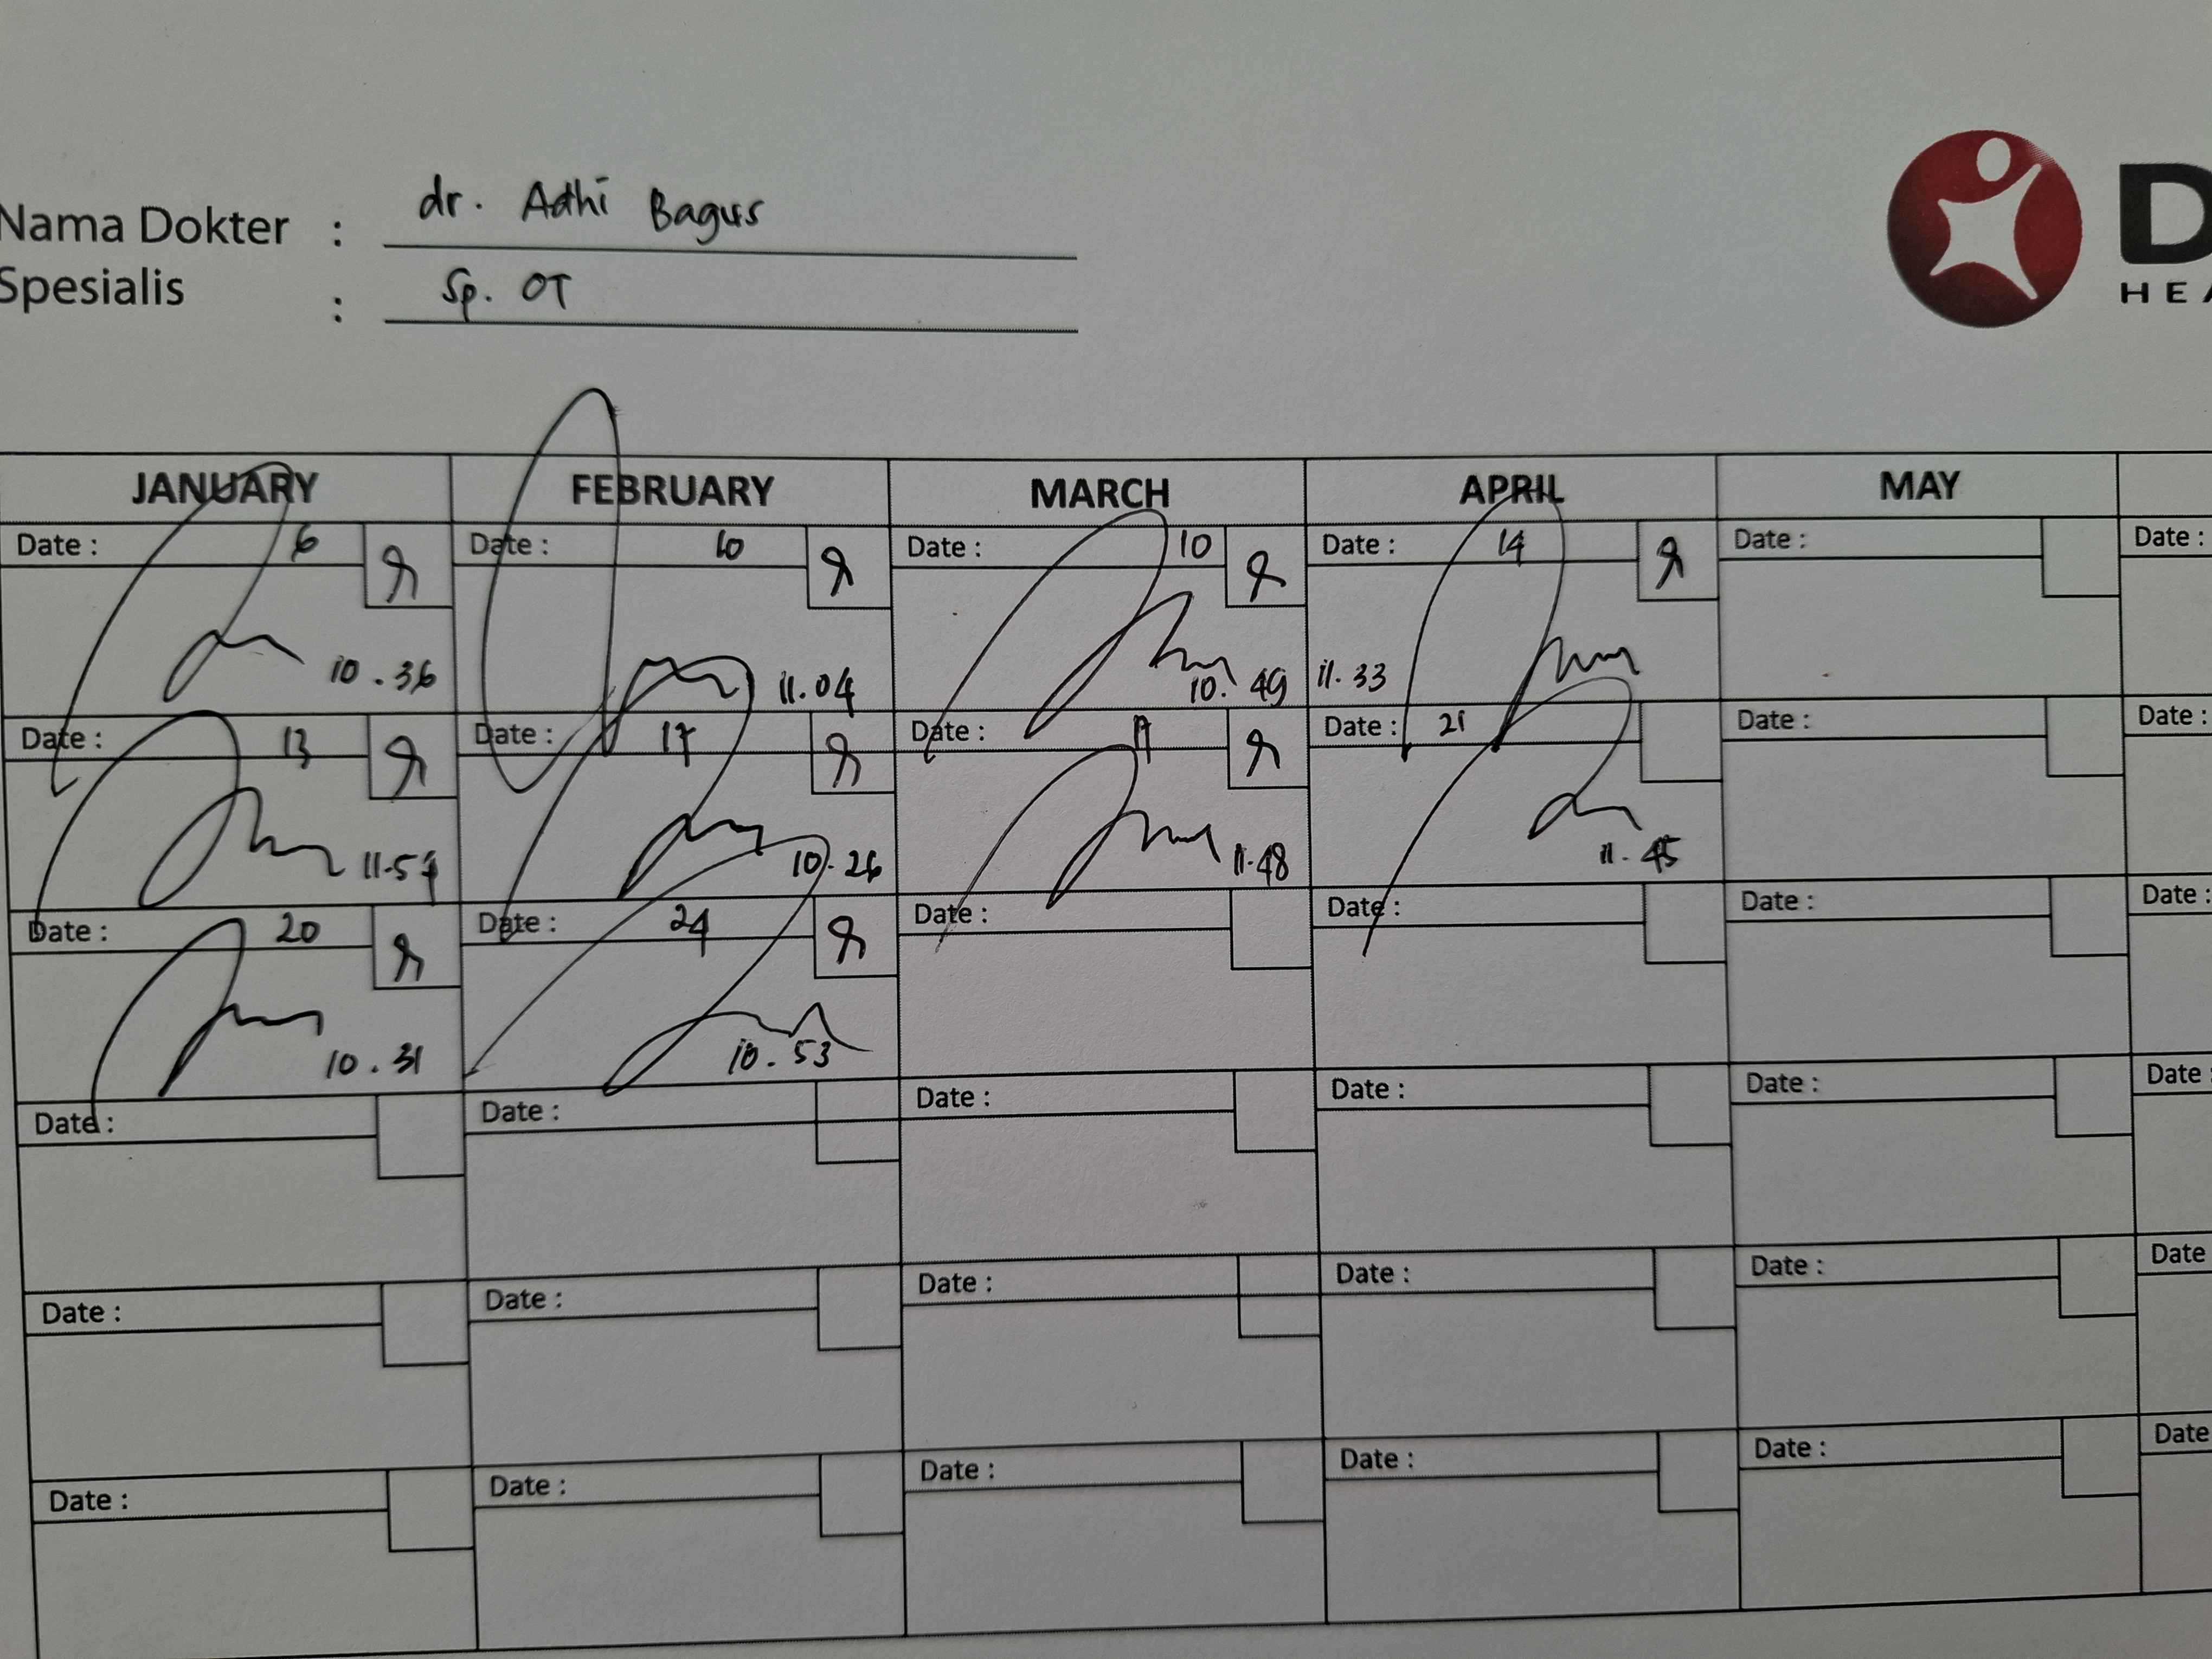 Nama Dokter : dr. Adhi Bagus
Spesialis : Sp. OT
D
HEA
JANUARY FEBRUARY MARCH APRIL MAY
Date : 6 Date : 10 Date : 10 Date : 14 Date : Date :
10.36 11.04 10.49 11.33
Date : 13 Date : 17 Date : 17 Date : 21 Date : Date :
11.57 10.26 11.48 11.45
Date : 20 Date : 24 Date : Date : Date : Date :
10.31 10.53
Date : Date : Date : Date : Date : Date :
Date : Date : Date : Date : Date : Date
Date : Date : Date : Date : Date : Date